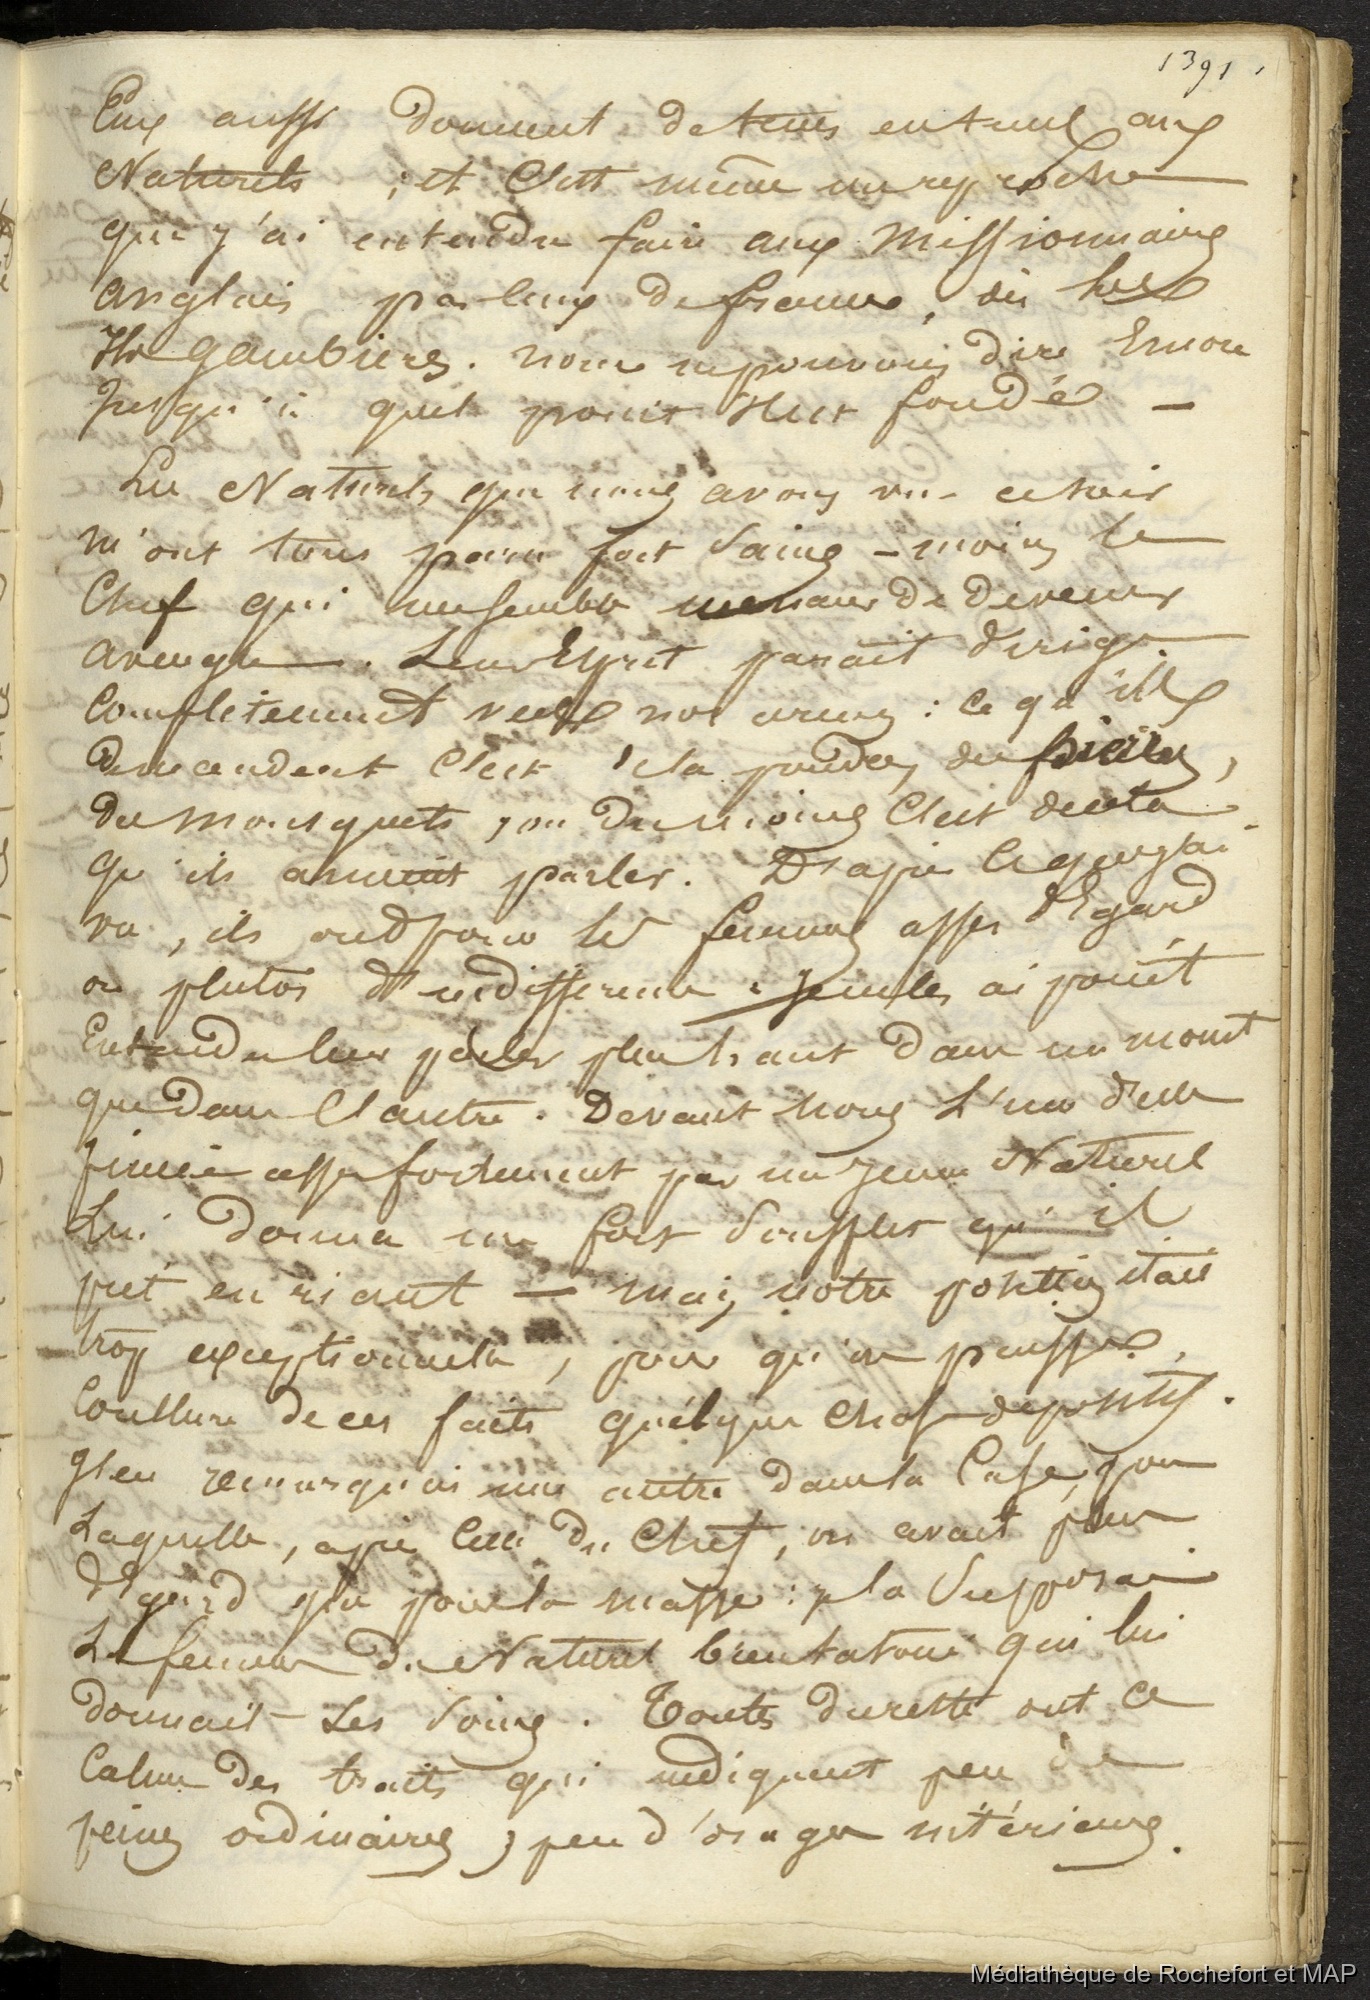 1391.
Eux aussi donnent de temps en temps aux
Naturels ; et c'est même un reproche
que j'ai entendu faire aux missionnaires
anglais par ceux de france, dès les
Iles gambiers. nous ne pouvons dire Encore
jusqu'à quel point Il est fondé —
Les Naturels que nous avons vus ce soir
m'ont tous paru fort sains — moins le
Chef qui me semble menacé de devenir
aveugle. Leur Esprit parait dirigé
Complétement vers nos armes : ce qu'ils
demandent c'est de la poudre, des fusils,
des mousquets, ou du moins c'est de cela
qu'ils aiment parler. D'après ce que j'ai
vu, ils ont pour les femmes assez d'Egard
ou plutos d'indifference. Je ne les ai point
Entendu leur parler plus haut dans un moment
que dans l'autre. Devant nous L'une d'elle
pincée assez fortement par un jeune Naturel
Lui donna un fort soufflet qu'il
prit en riant — mais notre position était
trop exceptionnelle, pour qu'on puisse,
Conclure de ces faits quelque chose de positif.
J'en remarquai une autre dans la Case, pour
Laquelle, après celle du Chef, on avait plus
d'Egard que pour la masse : je la supposai
La femme du Naturel bien tatoué qui lui
donnait Les soins. Toutes du reste ont ce
Calme des traits qui indiquent peu de
peines ordinaires, peu d'orages intérieurs.
Médiathèque de Rochefort et MAP